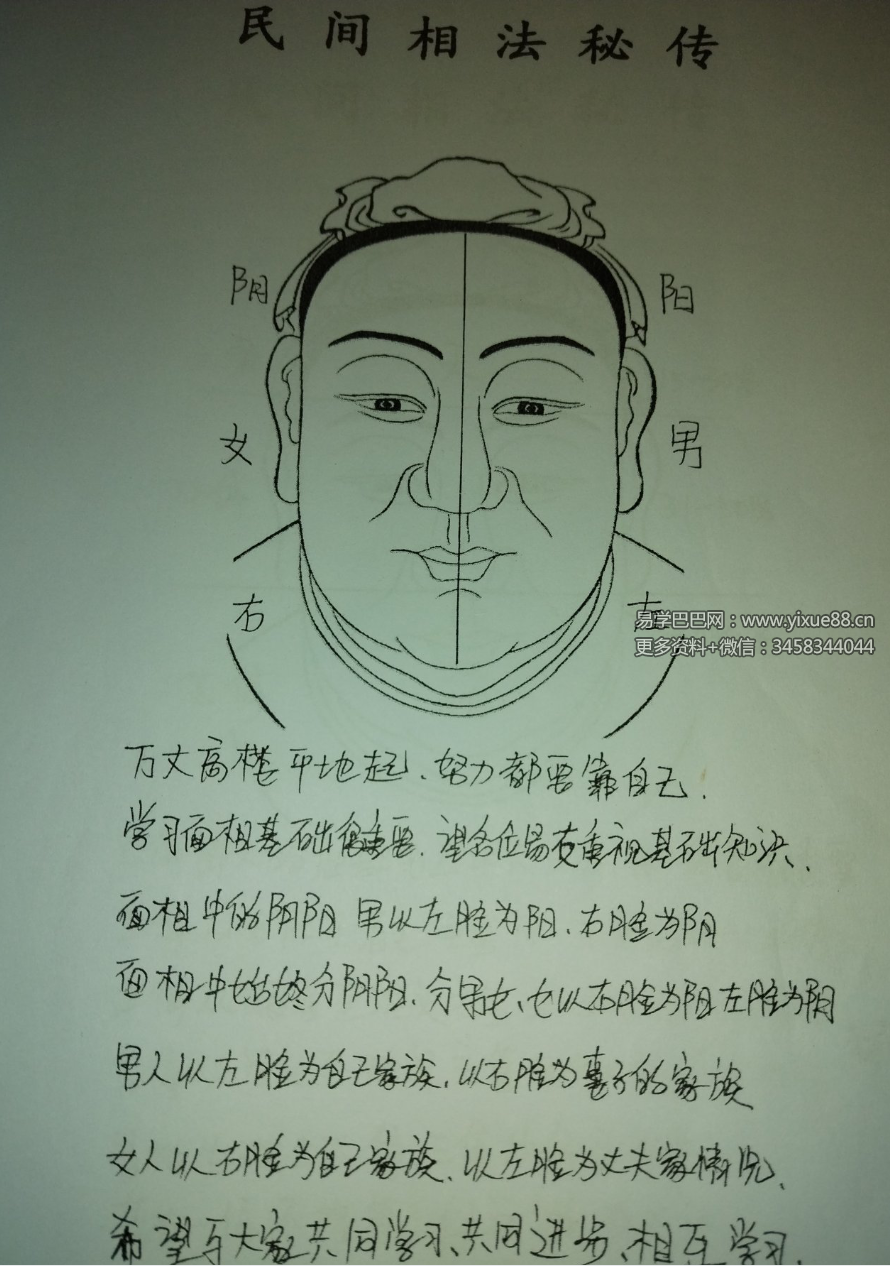 民间相法秘传
阴
阳
女
男
右
左
易学巴巴网：www.yixue88.cn
更多资料+微信：3458344044
万丈高楼平地起、努力都要靠自己.
学习面相基础很重要.望各位易友重视基础知识、
面相中的阴阳 男以左脸为阳、右脸为阴
面相中始终分阴阳.分男女、女以右脸为阳左脸为阴
男人以左脸为自己家族.以右脸为妻子的家族
女人以右脸为自己家族.以左脸为丈夫家情况、
希望与大家共同学习、共同进步、相互学习.